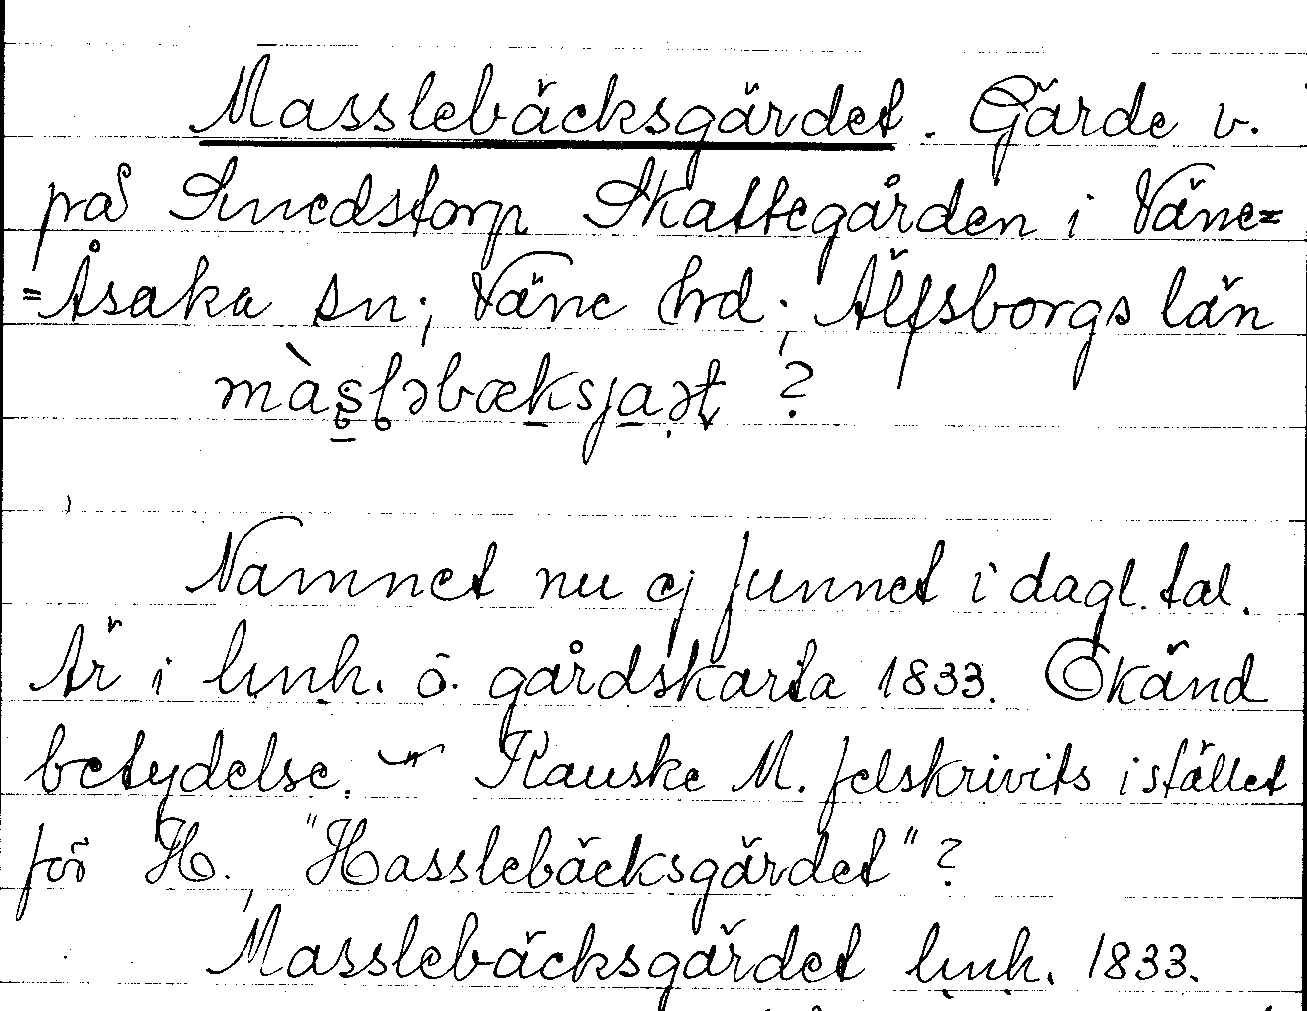 Masslebäcksgärdet. Gärde v.
på Smedstorp Skattegården i Väne=
=Åsaka sn; Väne hd; Älfsborgs län
?
Namnet nu ej funnet i dagl. tal.
Är i lmh. o. gårdskarta 1833. Okänd
betydelse. Kauske M. felskrivits istället
för H., "Hasslebäcksgärdet"?
Masslebäcksgärdet lmh. 1833.